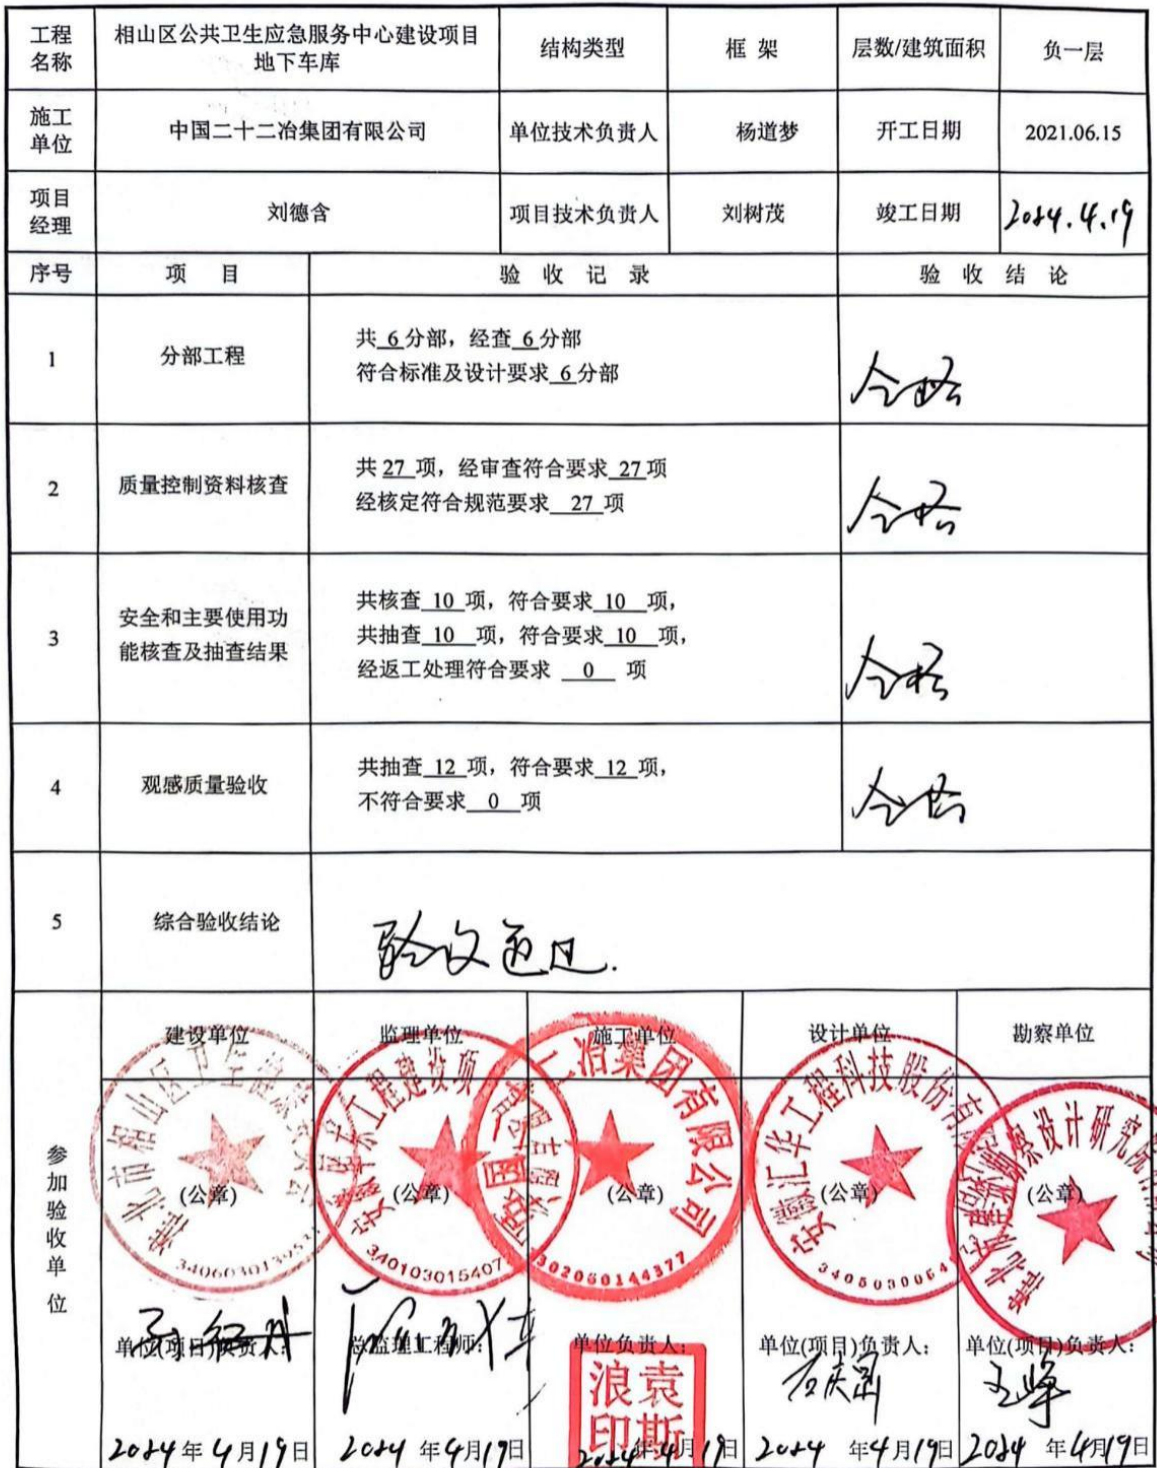 工程名称
相山区公共卫生应急服务中心建设项目
地下车库
结构类型
框 架
层数/建筑面积
负一层
施工单位
中国二十二冶集团有限公司
单位技术负责人
杨道梦
开工日期
2021.06.15
项目经理
刘德含
项目技术负责人
刘树茂
竣工日期
2024.4.19
序号
项 目
验 收 记 录
验 收 结 论
1
分部工程
共 6 分部，经查 6 分部
符合标准及设计要求 6 分部
合格
2
质量控制资料核查
共 27 项，经审查符合要求 27 项
经核定符合规范要求 27 项
合格
3
安全和主要使用功
能核查及抽查结果
共核查 10 项，符合要求 10 项，
共抽查 10 项，符合要求 10 项，
经返工处理符合要求 0 项
合格
4
观感质量验收
共抽查 12 项，符合要求 12 项，
不符合要求 0 项
合格
5
综合验收结论
验收通过.
参加验收单位
建设单位
监理单位
施工单位
设计单位
勘察单位
(公章)
(公章)
(公章)
(公章)
(公章)
单位(项目)负责人：
总监理工程师：
单位负责人：
单位(项目)负责人：
单位(项目)负责人：
王峰
袁斯浪印
2024 年 4 月 19 日
2024 年 4 月 19 日
2024 年 4 月 19 日
2024 年 4 月 19 日
2024 年 4 月 19 日